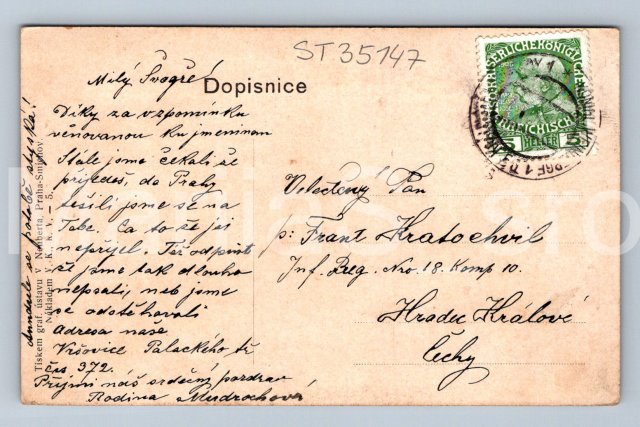 ST35147
Dopisnice
Milý Švagře!
Díky za vzpomínku
věnovanou ku jmeninam
Stále jsme čekali že
přijedeš, do Prahy
těšili jsme se na
Tebe. Ca to že jsi
nepřijel. Též odpusť
že jsme tak dlouho
nepsali, neb jsme
se odstěhovali
Adresa naše
Vršovice Palackého tř
čís 372.
Přijmi náš srdečný pozdrav
Rodina Mudrochová
se po tobě stýská!
Tiskem graf. ústavu v Neuberta, Praha-Smíchov.
Nákladem V. K. K. V. – 5.
Velectěný Pan
p: Frant Kratochvil
Inf. Reg. Nro. 18. Komp 10.
Hradec Králové
Čechy
KAISERLICHE KÖNIGLICHE
ÖSTERREICHISCHE
5 HELLER 5